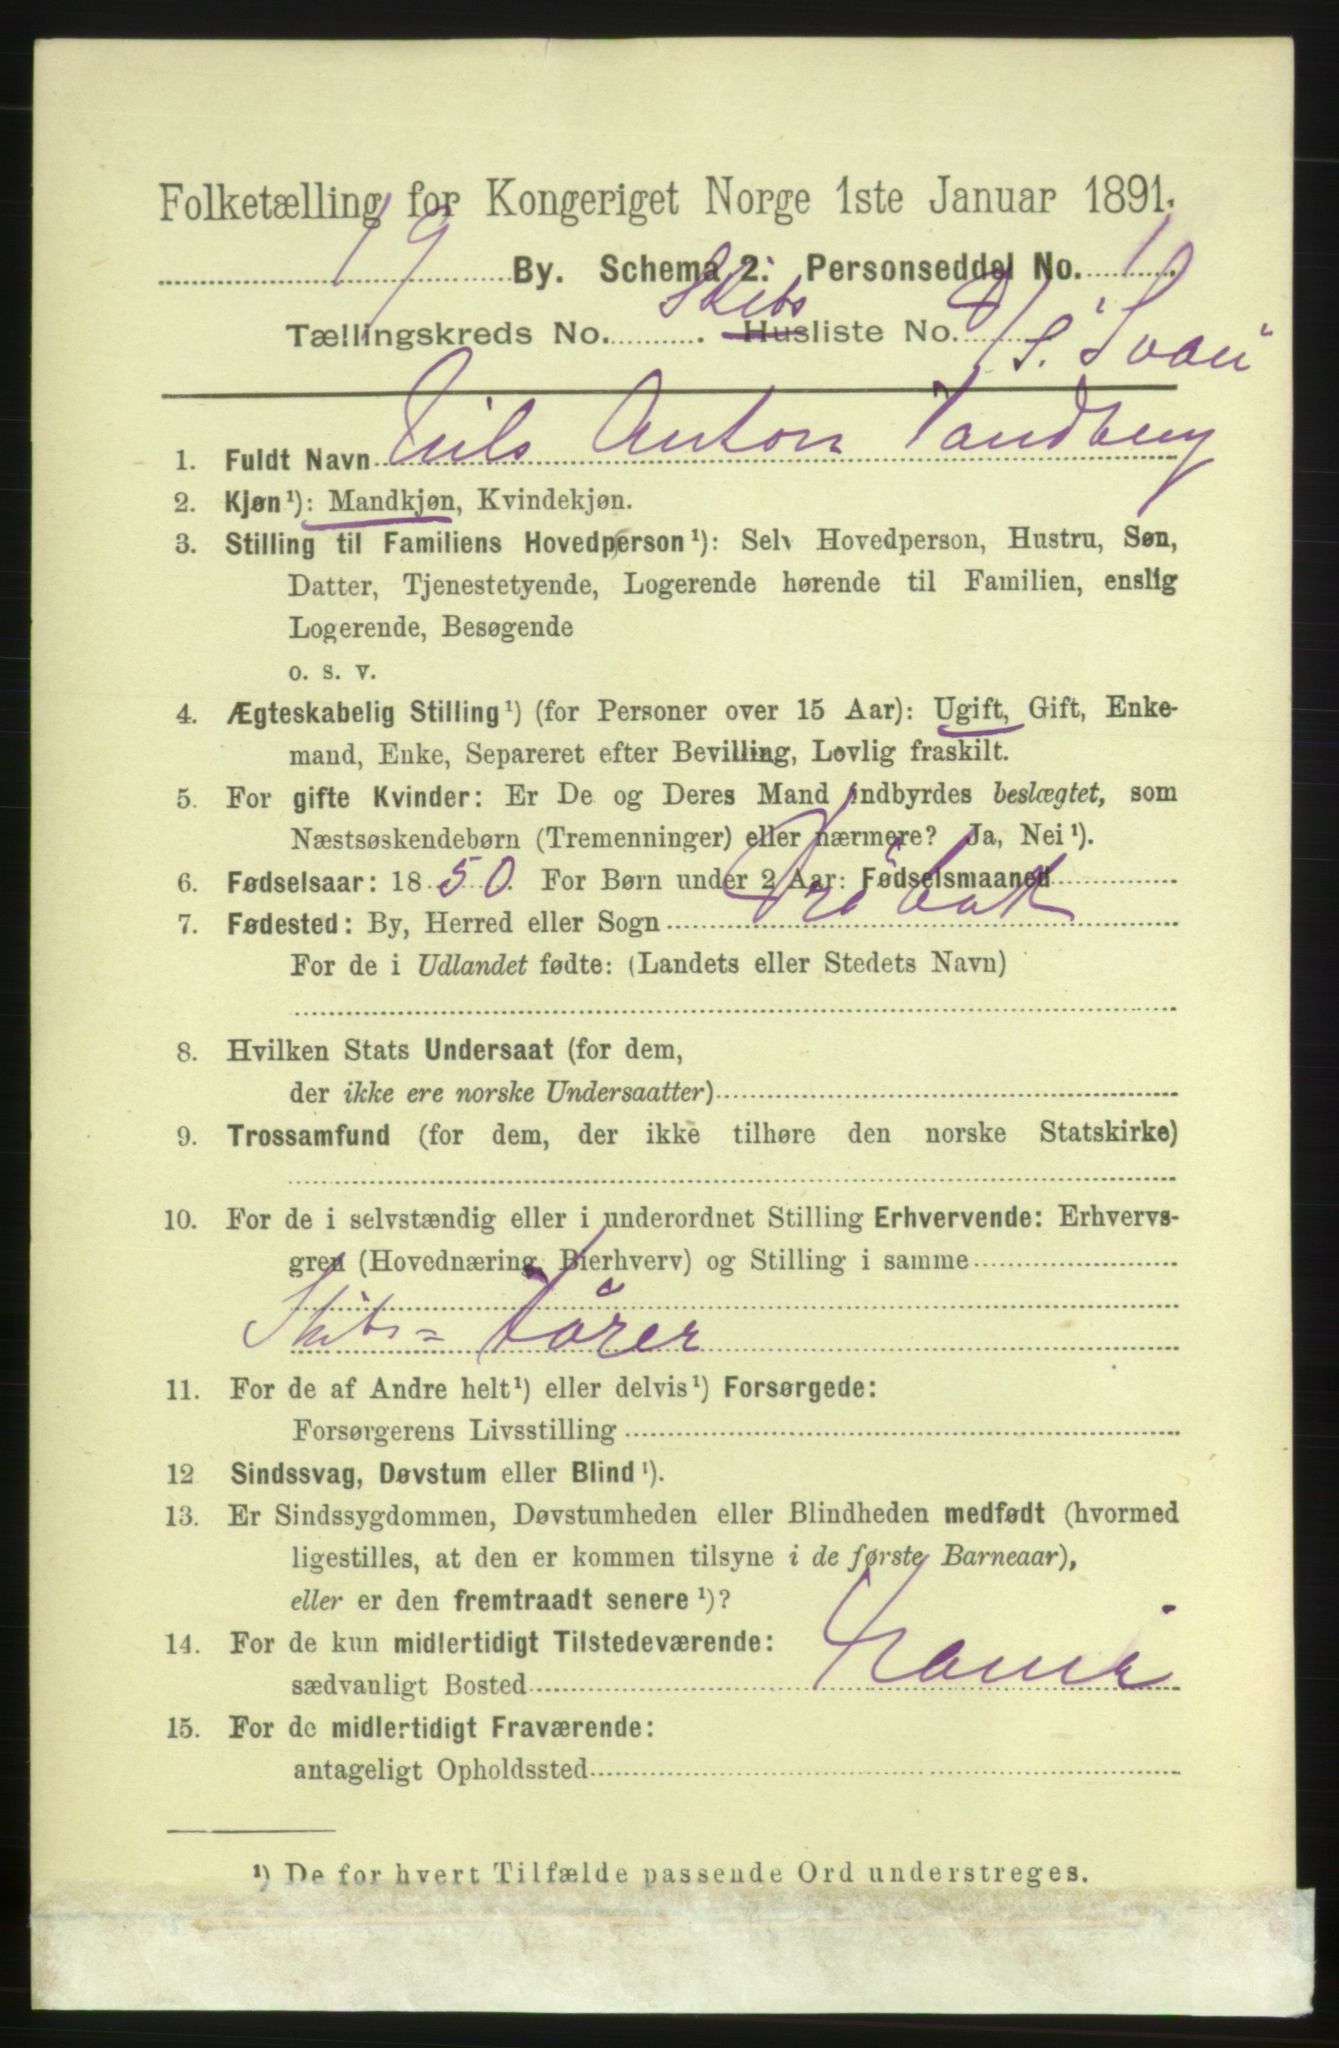 Folketælling for Kongeriget Norge 1ste Januar 1891.
19 By. Schema 2. Personseddel No. 10
Skibs
Tællingskreds No. . Husliste No.
S. "Svan"
1. Fuldt Navn Nils Anton Sandberg
2. Kjøn ¹): Mandkjøn, Kvindekjøn.
3. Stilling til Familiens Hovedperson ¹): Selv Hovedperson, Hustru, Søn,
Datter, Tjenestetyende, Logerende hørende til Familien, enslig
Logerende, Besøgende
o. s. v.
4. Ægteskabelig Stilling ¹) (for Personer over 15 Aar): Ugift, Gift, Enke-
mand, Enke, Separeret efter Bevilling, Lovlig fraskilt.
5. For gifte Kvinder: Er De og Deres Mand indbyrdes beslægtet, som
Næstsøskendebørn (Tremenninger) eller nærmere? Ja, Nei ¹).
6. Fødselsaar: 1850. For Børn under 2 Aar: Fødselsmaaned
7. Fødested: By, Herred eller Sogn Dröbak
For de i Udlandet fødte: (Landets eller Stedets Navn)
8. Hvilken Stats Undersaat (for dem,
der ikke ere norske Undersaatter)
9. Trossamfund (for dem, der ikke tilhøre den norske Statskirke)
10. For de i selvstændig eller i underordnet Stilling Erhvervende: Erhvervs-
gren (Hovednæring, Bierhverv) og Stilling i samme
Skibs=förer
11. For de af Andre helt ¹) eller delvis ¹) Forsørgede:
Forsørgerens Livsstilling
12 Sindssvag, Døvstum eller Blind ¹).
13. Er Sindssygdommen, Døvstumheden eller Blindheden medfødt (hvormed
ligestilles, at den er kommen tilsyne i de første Barneaar),
eller er den fremtraadt senere ¹)?
14. For de kun midlertidigt Tilstedeværende:
sædvanligt Bosted
15. For de midlertidigt Fraværende:
antageligt Opholdssted
¹) De for hvert Tilfælde passende Ord understreges.